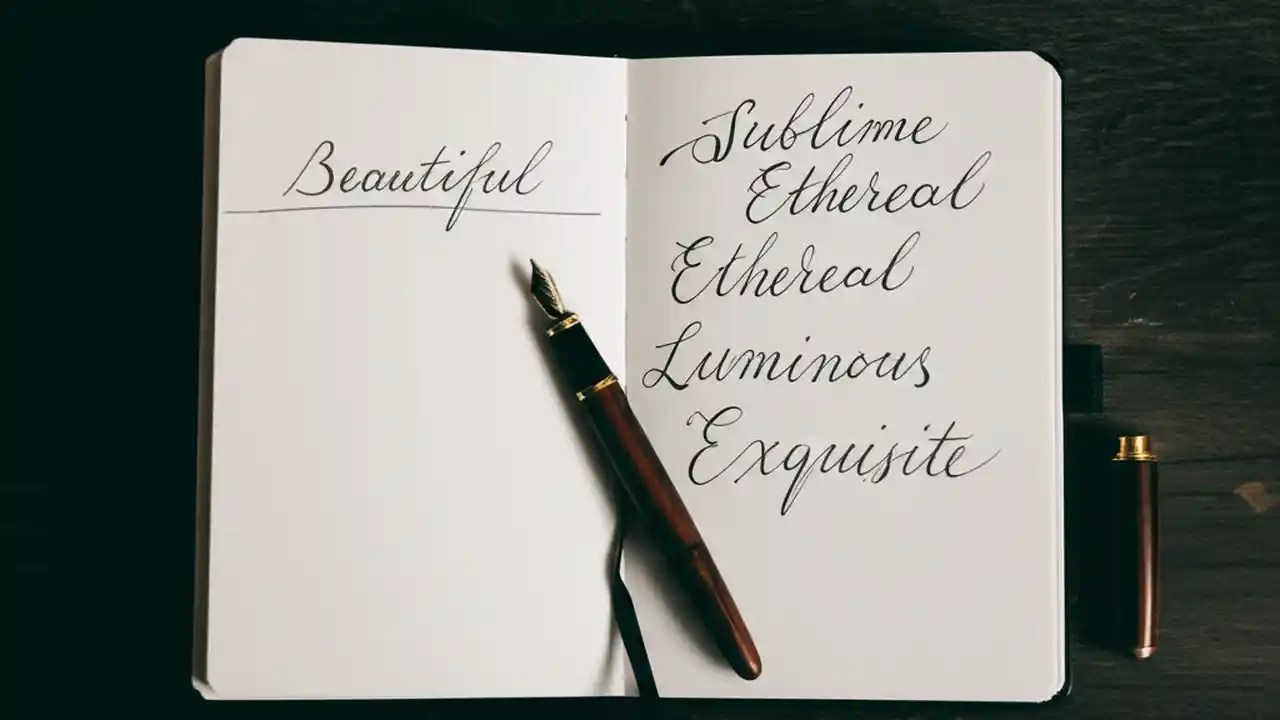 Beautiful
Sublime
Ethereal
Ethereal
Luminous
Exquisite